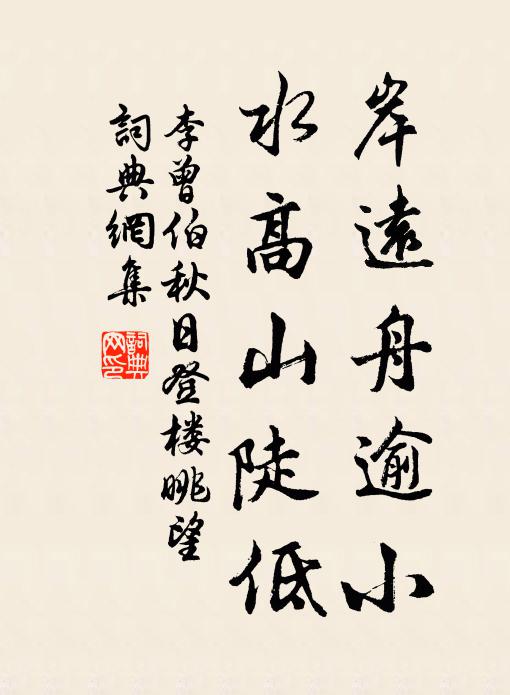 岸遠舟逾小
水高山陡低
李曾伯秋日登楼眺望
詞典網集
詞典
网印